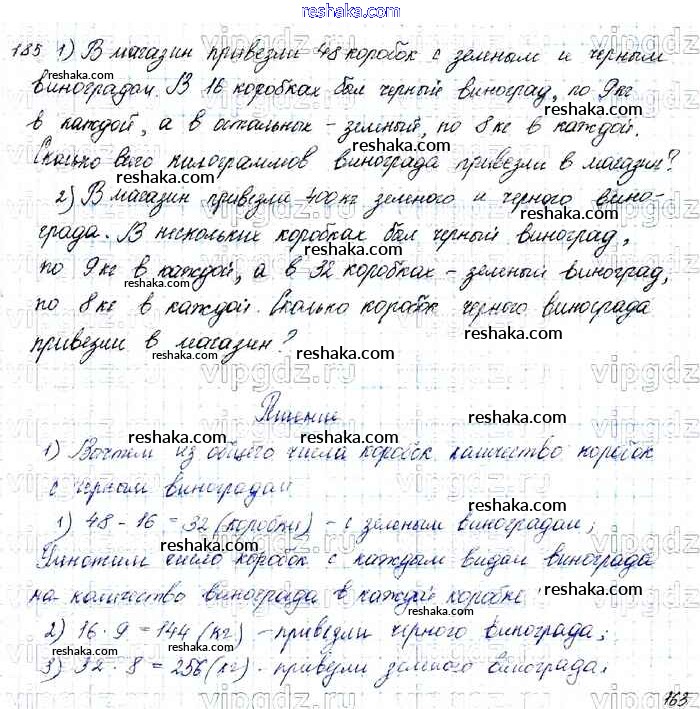 reshaka.com
185 1) В магазин привезли 48 коробок с зеленым и черным
виноградом. В 16 коробках был черный виноград, по 9 кг
в каждой, а в остальных - зеленый, по 8 кг в каждой.
Сколько всего килограммов винограда привезли в магазин?
2) В магазин привезли 400 кг зеленого и черного вино-
града. В нескольких коробках был черный виноград,
по 9 кг в каждой, а в 32 коробках - зеленый виноград,
по 8 кг в каждой. Сколько коробок черного винограда
привезли в магазин?
Решение
1) Вычтем из общего числа коробок количество коробок
с черным виноградом
1) 48 - 16 = 32 (коробки) - с зеленым виноградом;
Умножим число коробок с каждым видом винограда
на количество винограда в каждой коробке
2) 16 · 9 = 144 (кг) - привезли черного винограда;
3) 32 · 8 = 256 (кг) - привезли зеленого винограда.
163